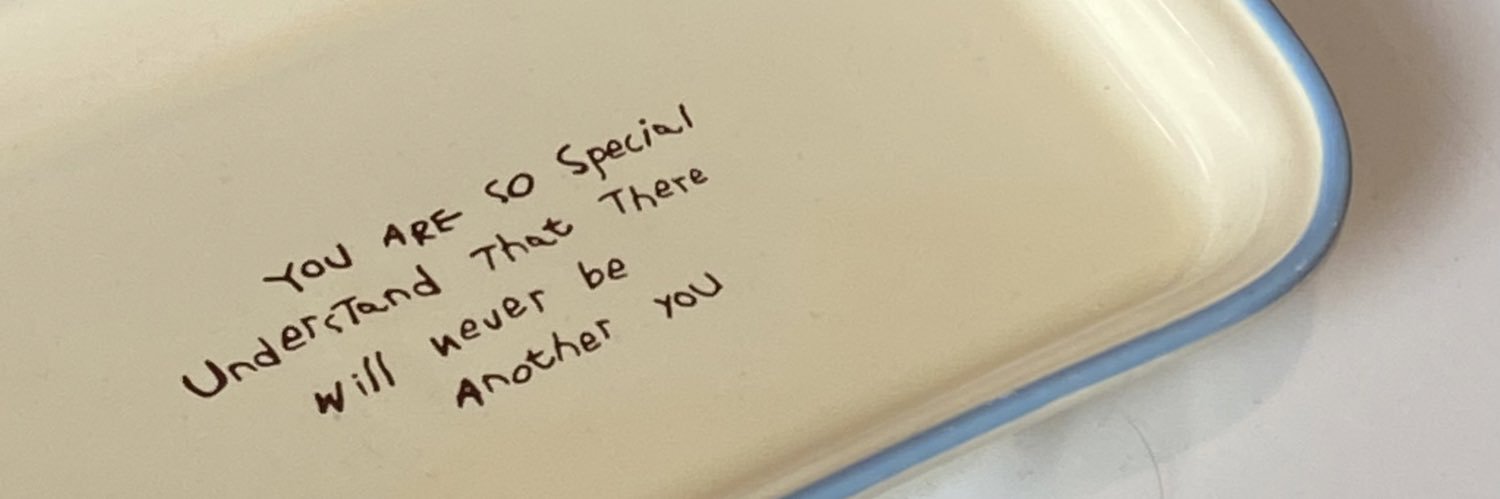 YOU ARE SO Special
Understand That There
Will never be
Another YOU